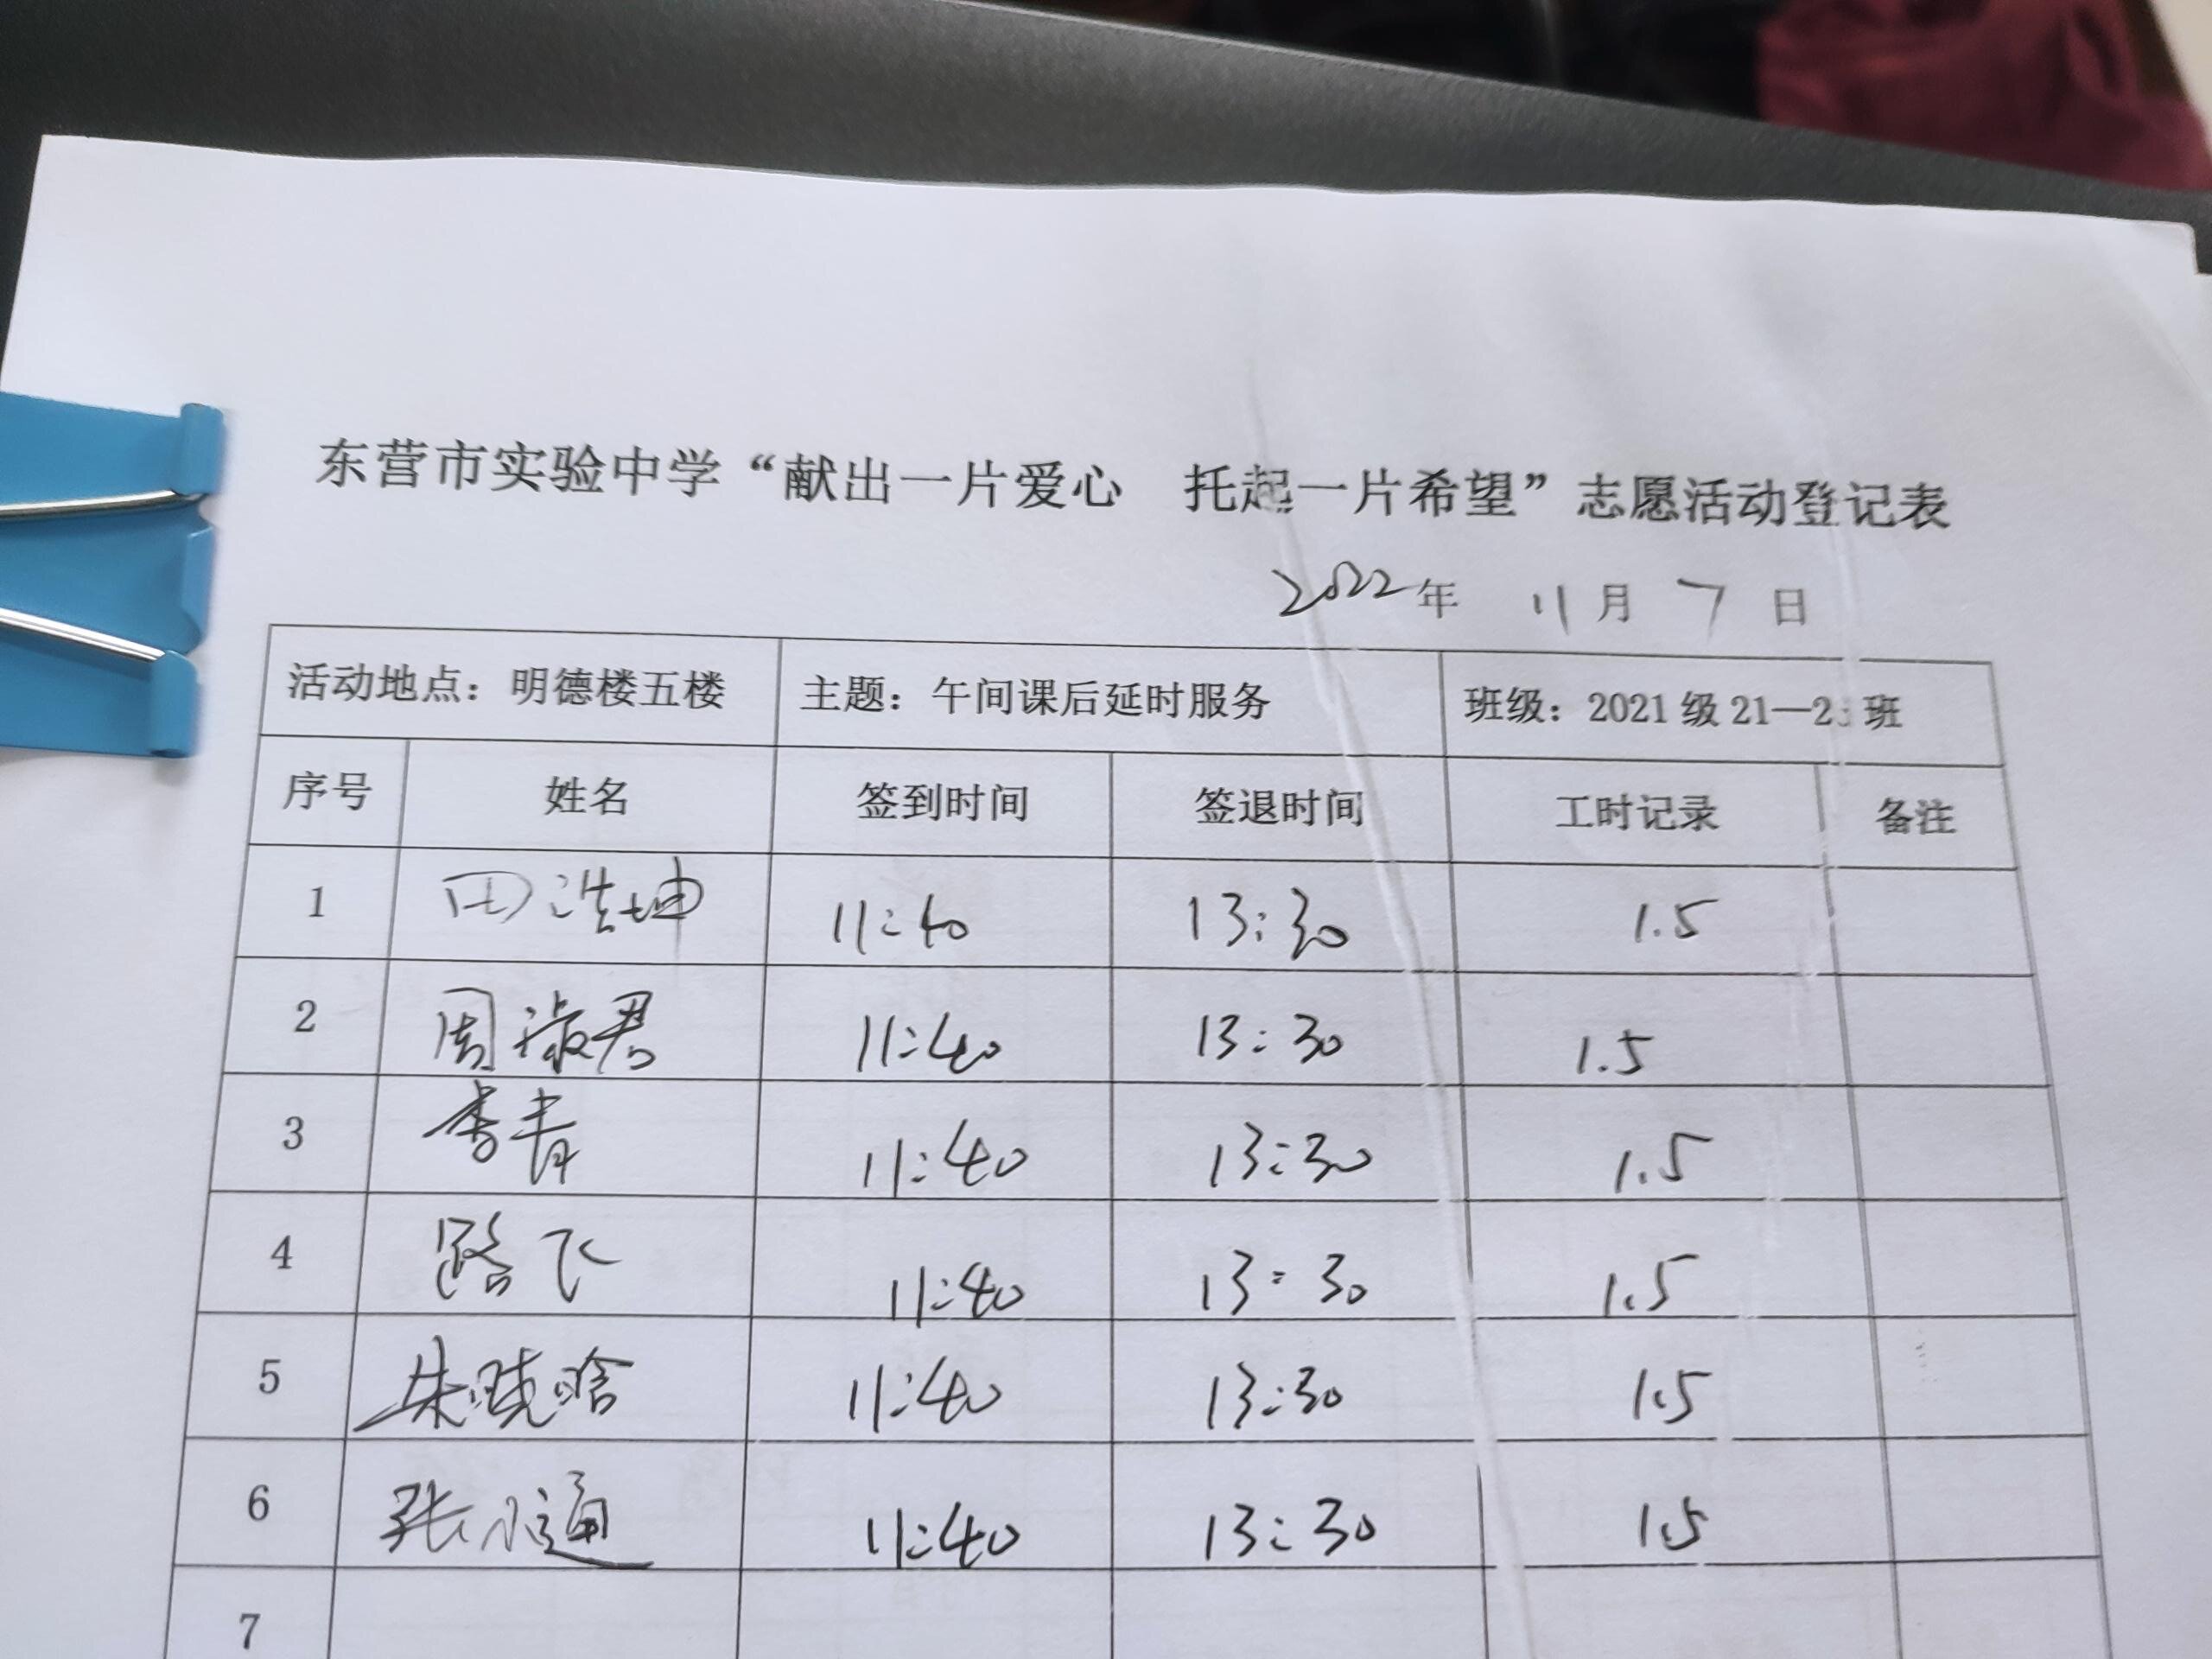 东营市实验中学“献出一片爱心　托起一片希望”志愿活动登记表
2022年 11月 7日
活动地点：明德楼五楼 主题：午间课后延时服务 班级：2021级21—2 班
序号 姓名 签到时间 签退时间 工时记录 备注
1 田浩坤 11:40 13:30 1.5
2 周淑君 11:40 13:30 1.5
3 李青 11:40 13:30 1.5
4 路飞 11:40 13:30 1.5
5 朱晓晗 11:40 13:30 1.5
6 张 通 11:40 13:30 1.5
7